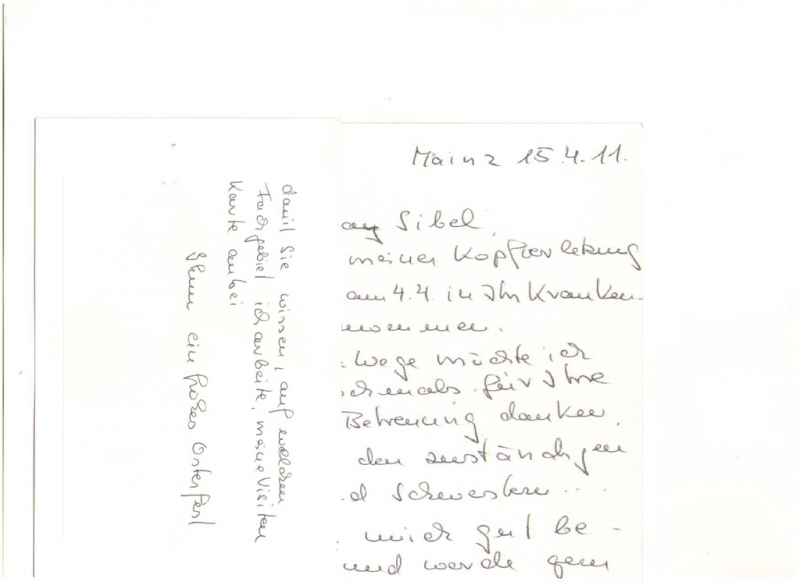 Mainz 15.4.11.
Sibel,
meiner Kopfverletzung
am 4.4. in Ihr Kranken-
nommen.
Wege möchte ich
chmals für Ihre
Betreuung danken.
den zuständigen
d Schwestern...
mich gut be-
und werde gern
damit Sie wissen, auf welchem
Fachgebiet ich arbeite, meine Visiten
Karte anbei.
Ihnen ein frohes Osterfest